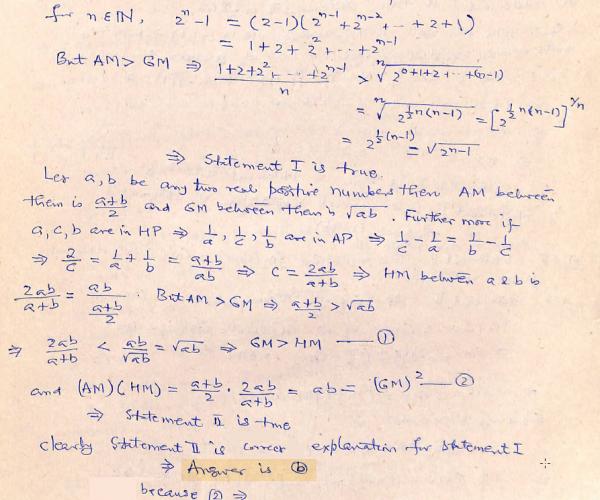 for n ∈ IN, 2^n - 1 = (2-1)(2^{n-1} + 2^{n-2} + ... + 2 + 1)
= 1 + 2 + 2^2 + ... + 2^{n-1}
But AM > GM ⇒ (1+2+2^2+...+2^{n-1})/n > ⁿ√(2^{0+1+2+...+(n-1)})
= ⁿ√(2^{½n(n-1)}) = [2^{½n(n-1)}]^{1/n}
= 2^{½(n-1)} = √(2^{n-1})
⇒ Statement I is true.
Let a, b be any two real positive numbers then AM between
them is (a+b)/2 and GM between them is √ab. Further more if
a, c, b are in HP ⇒ 1/a, 1/c, 1/b are in AP ⇒ 1/c - 1/a = 1/b - 1/c
⇒ 2/c = 1/a + 1/b = (a+b)/ab ⇒ c = 2ab/(a+b) ⇒ HM between a & b is
2ab/(a+b) = ab/((a+b)/2). But AM > GM ⇒ (a+b)/2 > √ab
⇒ 2ab/(a+b) < ab/√ab = √ab ⇒ GM > HM — ①
and (AM)(HM) = (a+b)/2 · 2ab/(a+b) = ab = (GM)^2 — ②
⇒ Statement II is true
clearly Statement II is correct explanation for Statement I
⇒ Answer is ⓑ
because ② ⇒